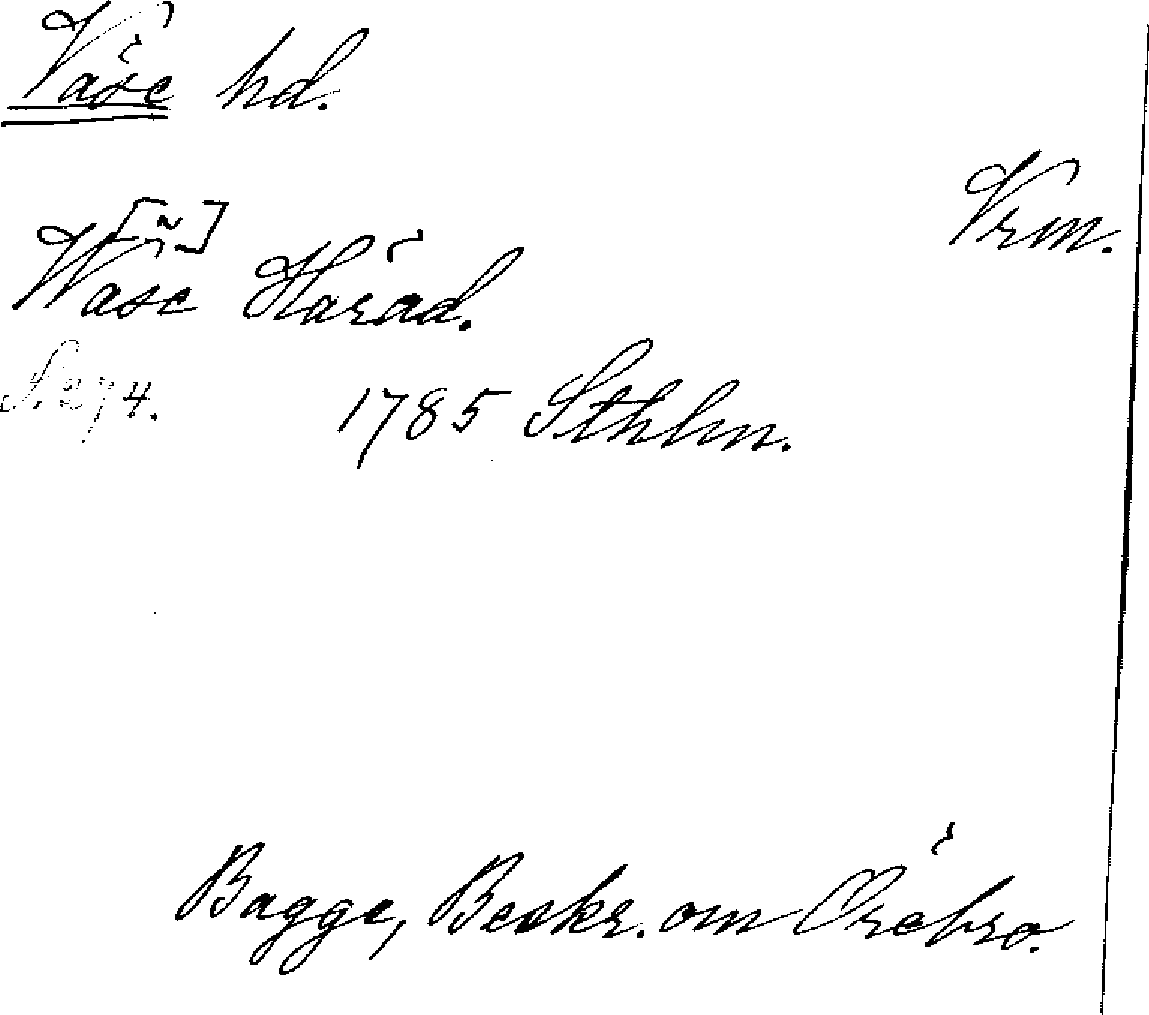 Väse hd.
Vrm.
[~]
Wäse Härad.
S. 274. 1785 Sthlm.
Bagge, Beskr. om Örebro.